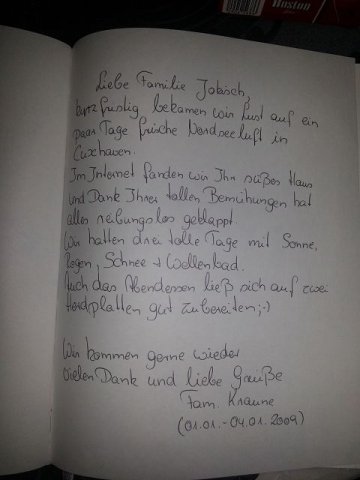 Huston
Liebe Familie Jobisch,
kurzfristig bekamen wir Lust auf ein
paar Tage frische Nordseeluft in
Cuxhaven.
Im Internet fanden wir Ihr süßes Haus
und Dank Ihrer tollen Bemühungen hat
alles reibungslos geklappt.
Wir hatten drei tolle Tage mit Sonne,
Regen, Schnee + Wellenbad.
Auch das Abendessen ließ sich auf zwei
Herdplatten gut zubereiten ;-)
Wir kommen gerne wieder
Vielen Dank und liebe Grüße
Fam. Kraune
(01.01.-04.01.2009)